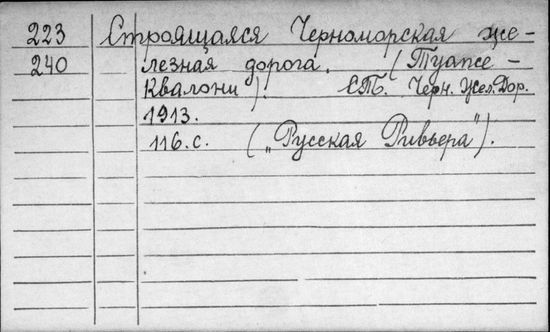 223 Строящаяся Черноморская же-
240 лезная дорога. (Туапсе -
Квалони). СПб. Черн. Жел. Дор.
1913.
116.с. („Русская Ривьера").